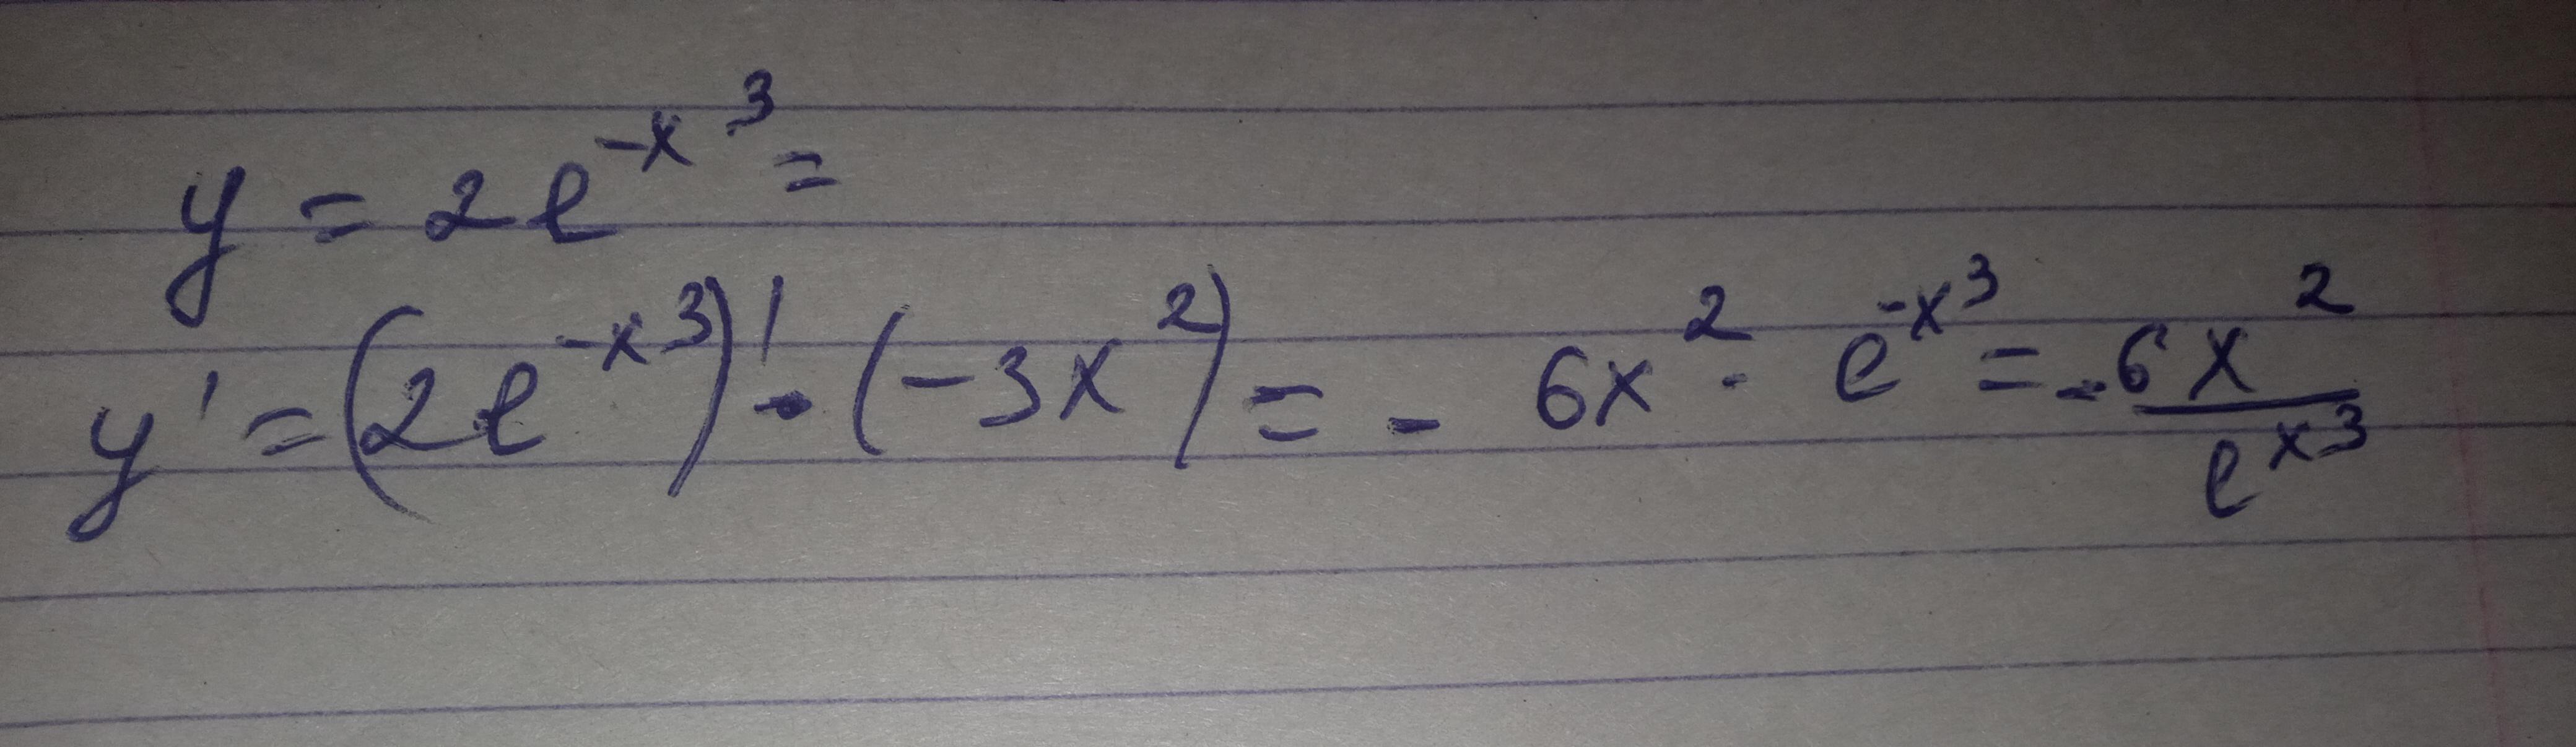 y = 2e^{-x^3} =
y' = (2e^{-x^3})' · (-3x^2) = - 6x^2 · e^{-x^3} = - \frac{6x^2}{e^{x^3}}